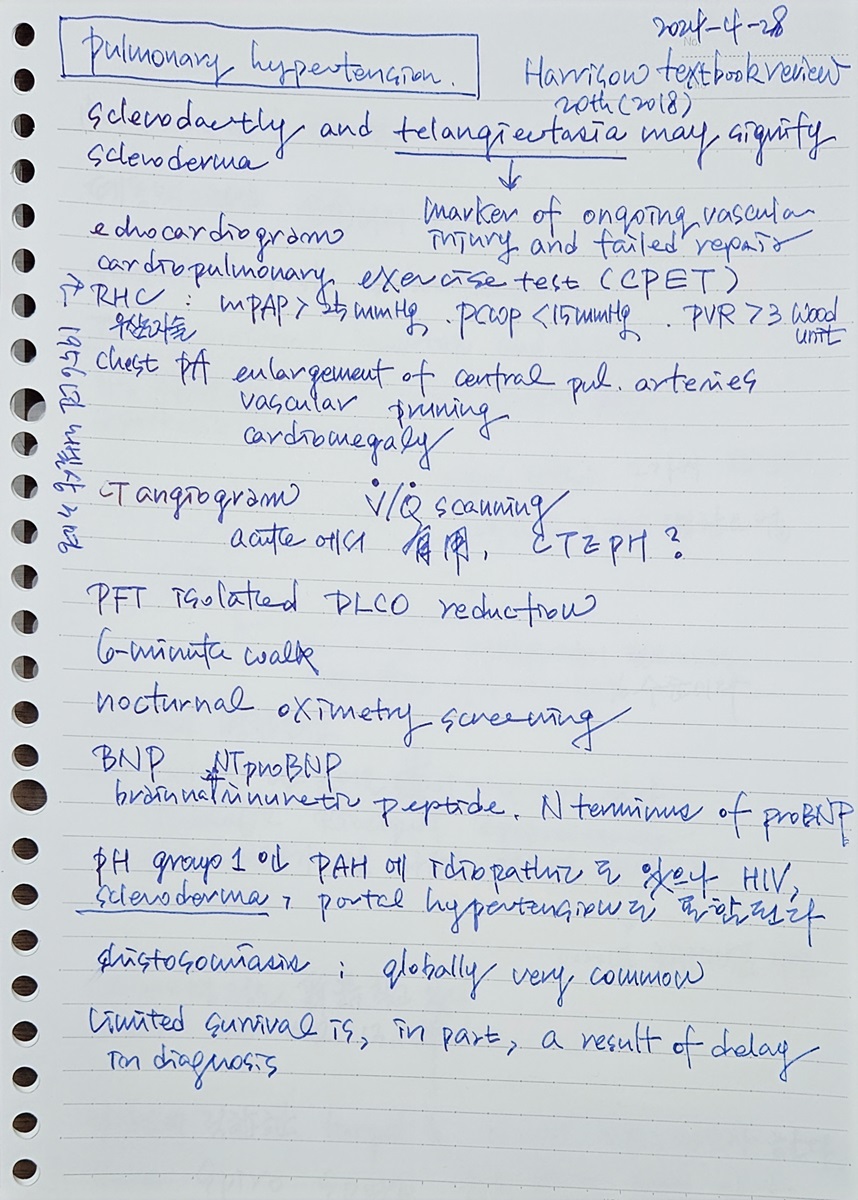 2024-4-28
pulmonary hypertension.
Harrison textbook review
20th (2018)
sclerodactly and telangiectasia may signify
scleroderma
↓
marker of ongoing vascular
injury and failed repair
echocardiogram
cardiopulmonary exercise test (CPET)
↗ RHC : mPAP > 25 mmHg. PCWP < 15 mmHg. PVR > 3 Wood
unit
우심도자술
1956년 노벨상 수상
chest PA enlargement of central pul. arteries
vascular pruning
cardiomegaly
CT angiogram V̇/Q̇ scanning
acute 에서 有用, CTEPH?
PFT isolated DLCO reduction
6-minute walk
nocturnal oximetry screening
BNP NTproBNP
brain natriuretic peptide. N terminus of proBNP
PH group 1 인 PAH 에 idiopathic 도 있으나 HIV,
scleroderma, portal hypertension도 포함된다
shistosomiasis ; globally very common
Limited survival is, in part, a result of delay
in diagnosis